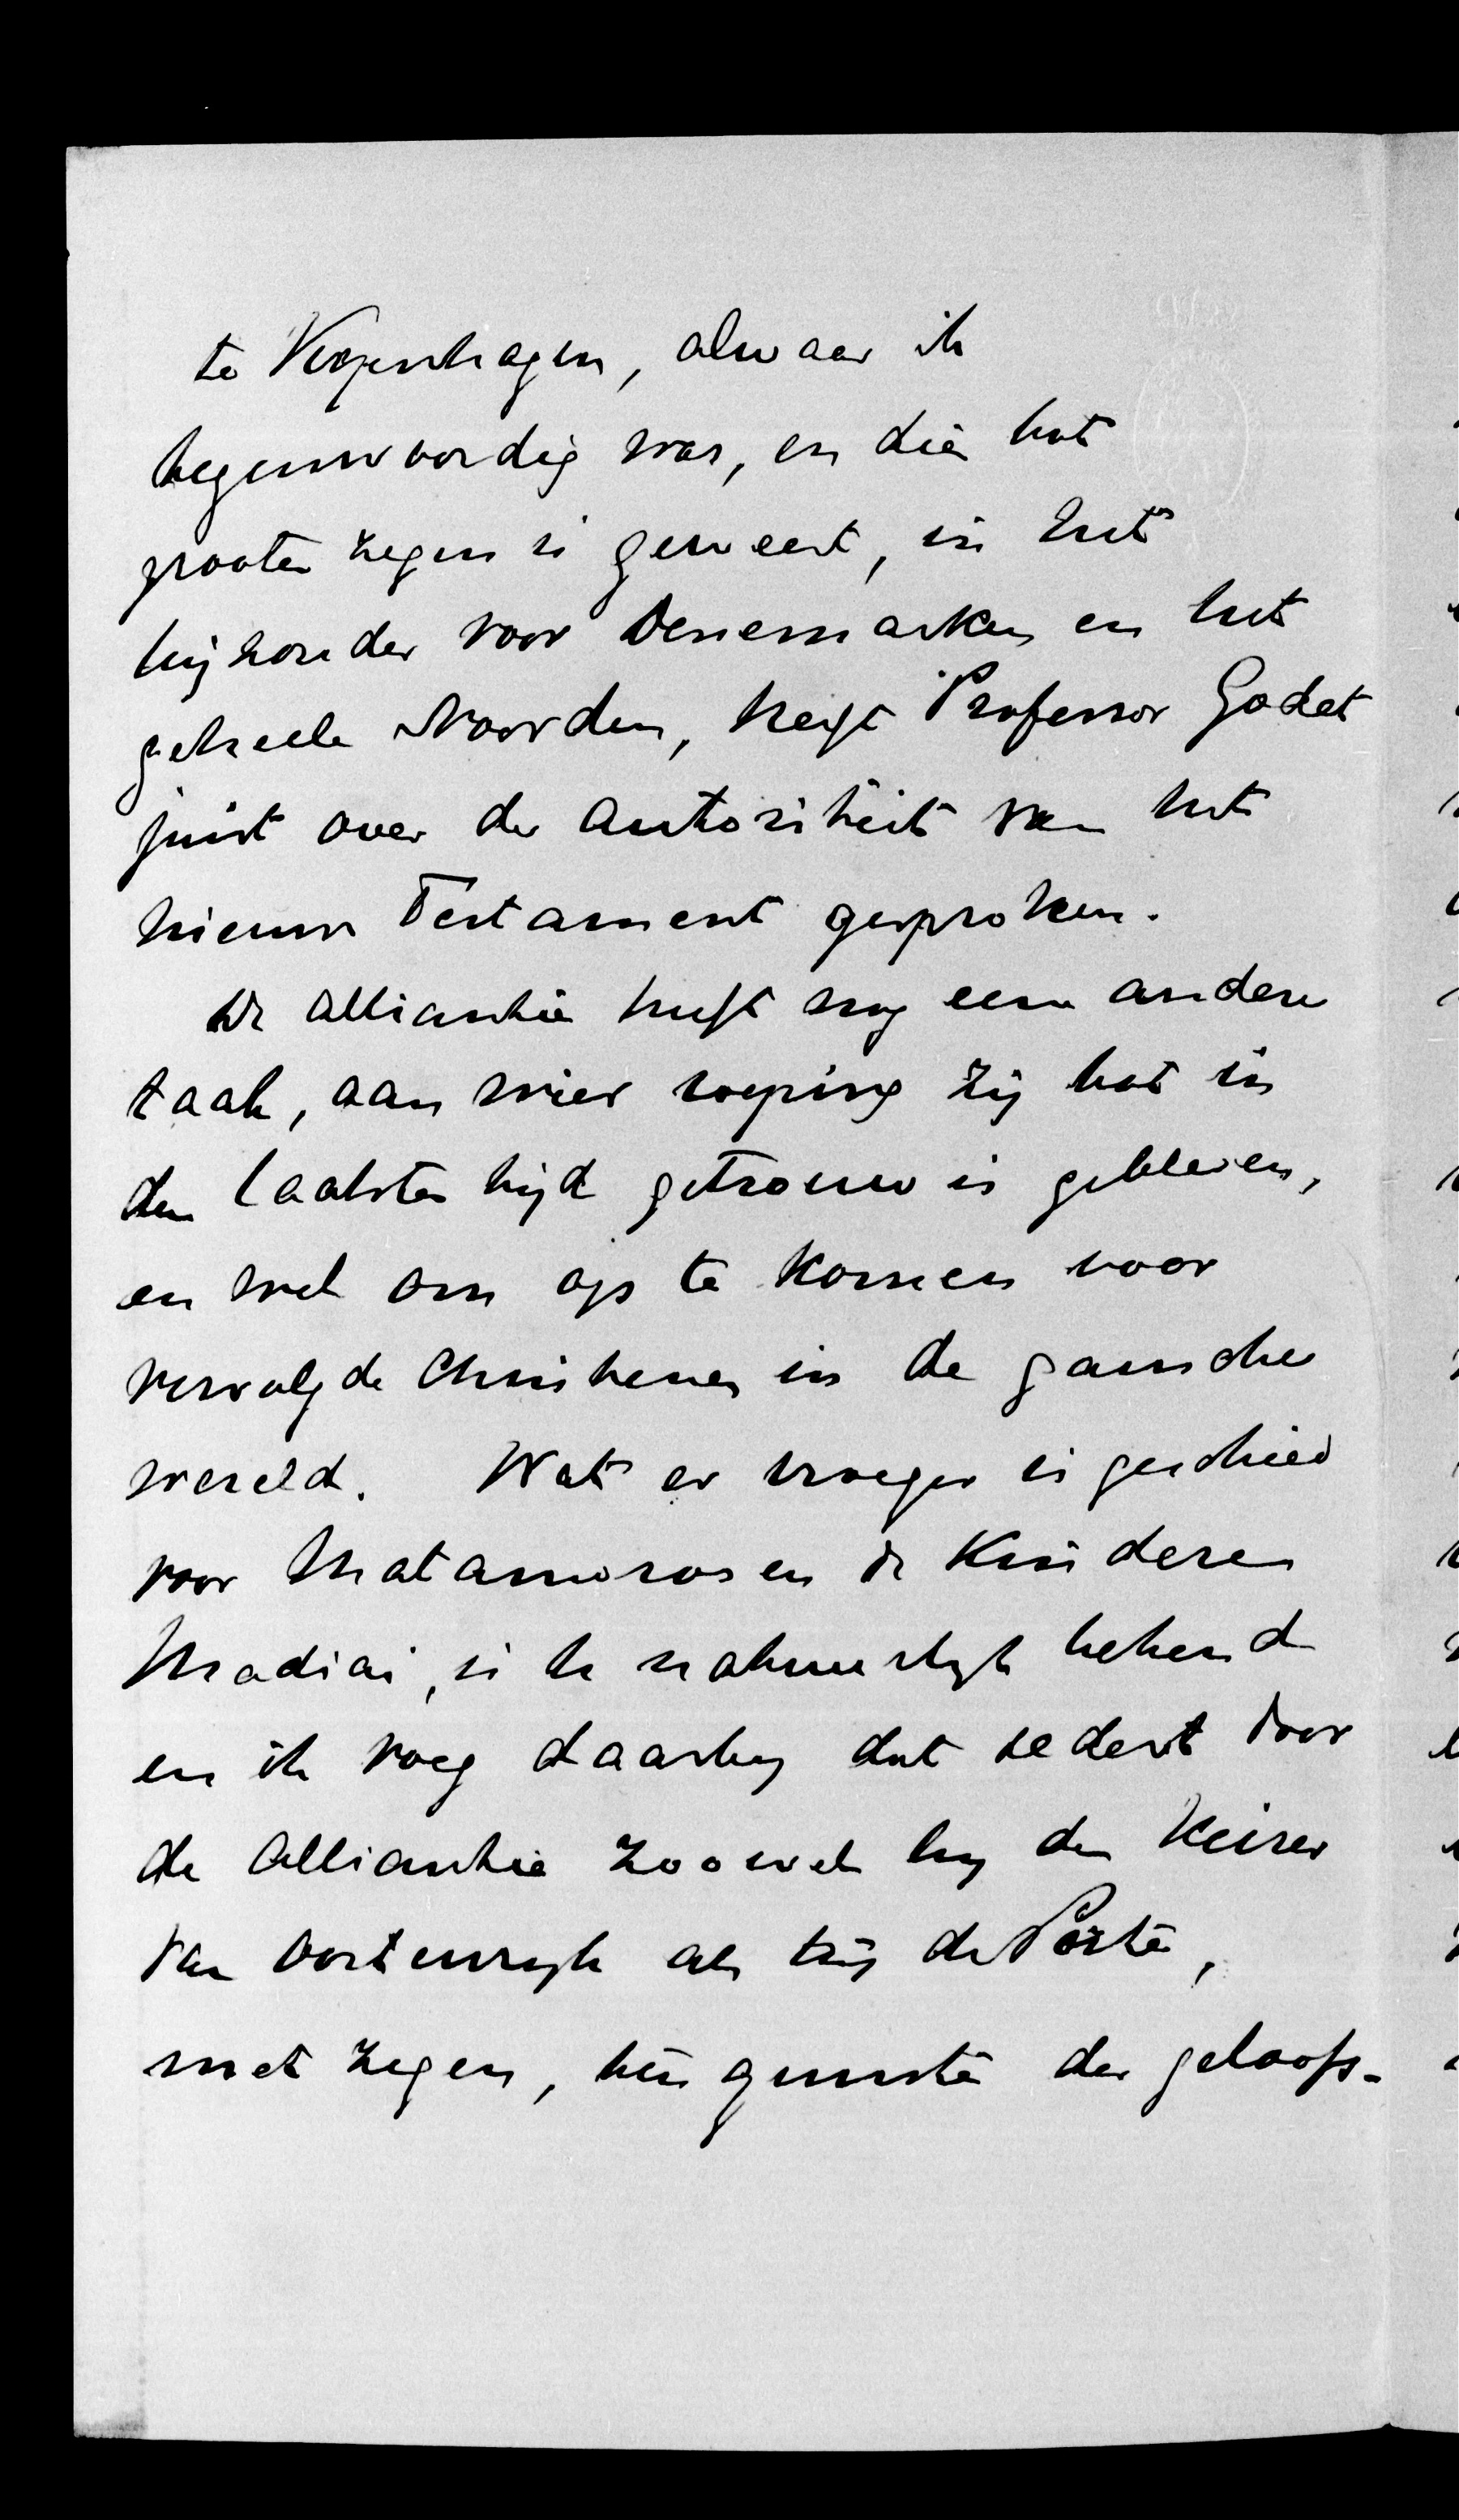 te Kopenhagen, alwaar ik
tegenwoordig was, en die tot
grooten zegen is geweest, in het
bijzonder voor Denemarken en het
geheele Noorden, heeft Professor Godet
juist over de autoriteit van het
nieuw Testament gesproken.
De alliantie heeft nog eene andere
taak, aan wier roeping zij tot in
den laatsten tijd getrouw is gebleven,
en wel om op te komen voor
vervolgde Christenen in de gansche
wereld. Wat er vroeger is geschied
voor Matamoros en de Kinderen
Madiai, is U natuurlijk bekend
en ik voeg daarbij dat sedert door
de Alliantie zoowel bij den Keizer
van Oostenrijk als bij de Porte,
met zegen, ten gunste der geloofs-